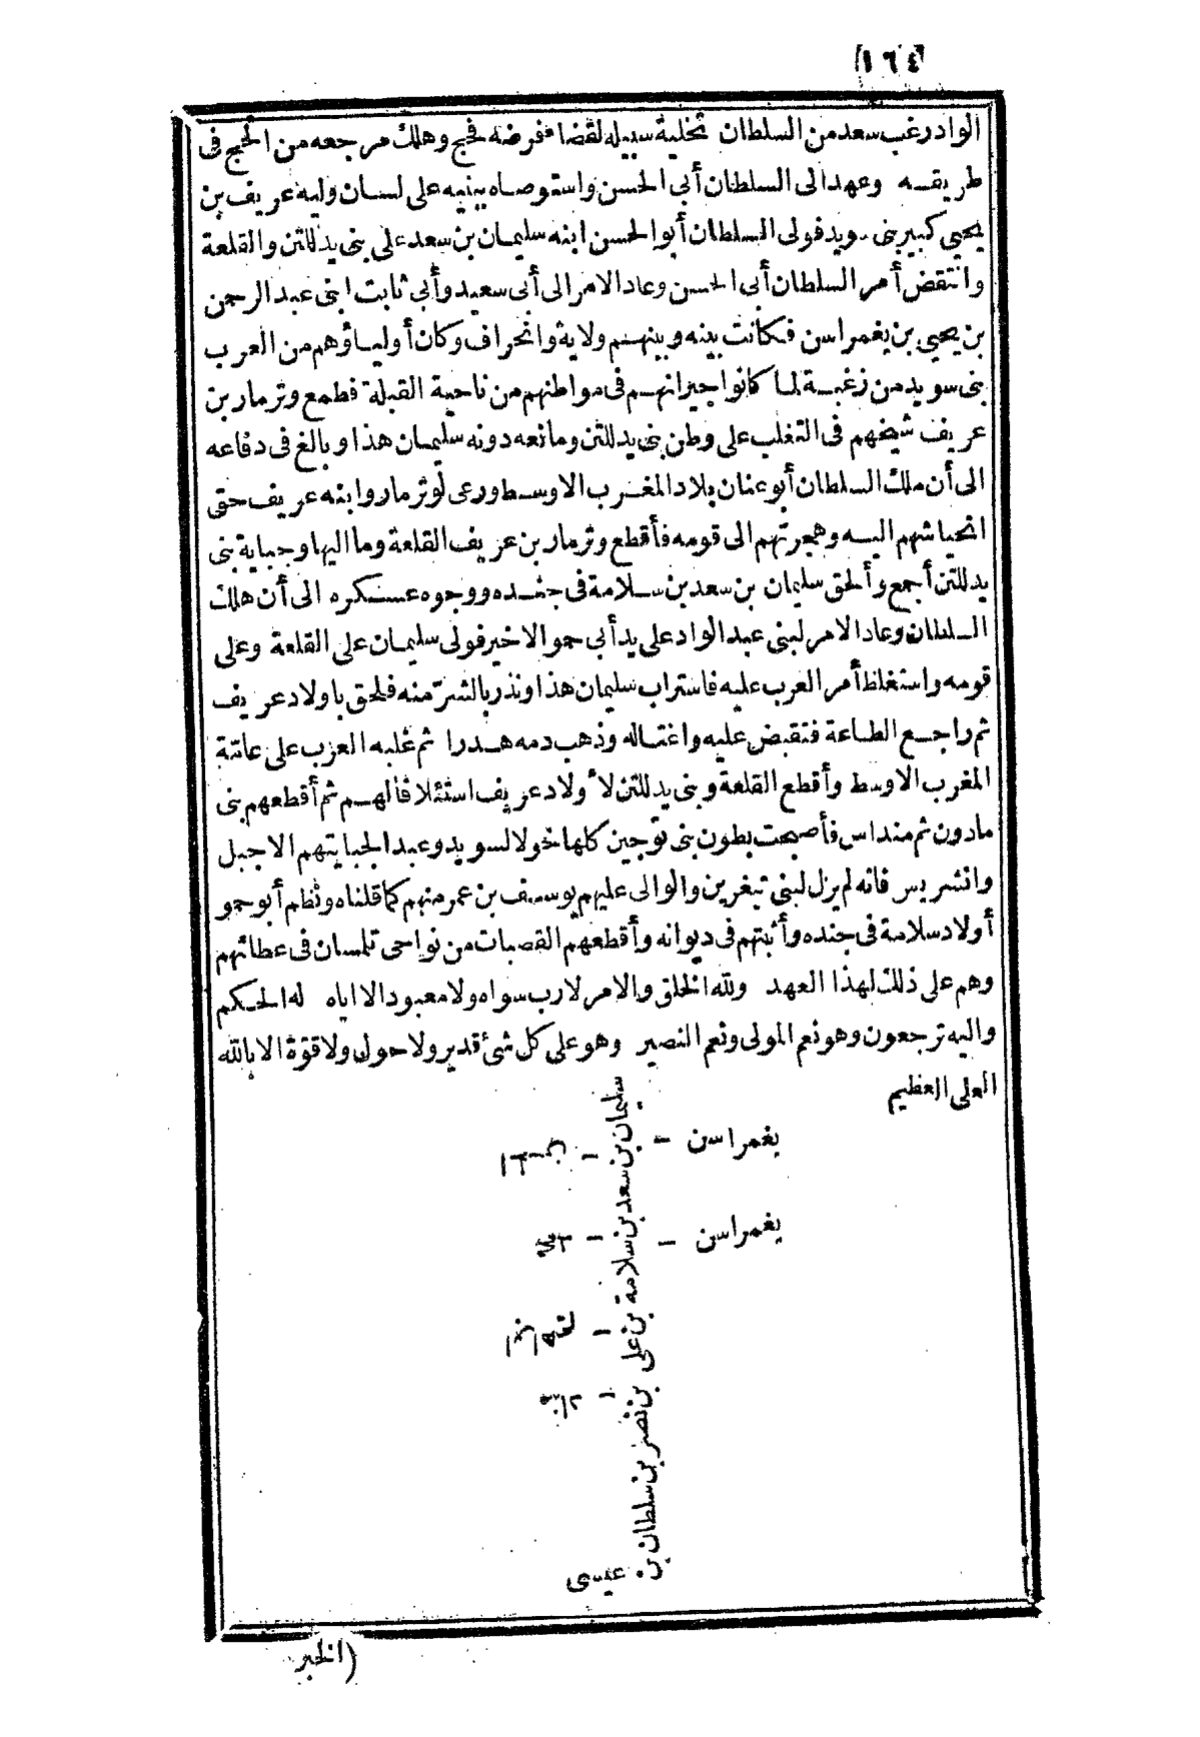 (١٦٤)
الواد رغب سعد من السلطان تخلية سبيله لقضاء فرضه فحج وهلك مرجعه من الحج فى
طريقه وعهد الى السلطان أبى الحسن واستوصاه ببنيه على لسان وليه عريف بن
يحيى كبير بنى سويد فولى السلطان أبو الحسن ابنه سليمان بن سعد على بنى يدللتن والقلعة
وانتقض أمر السلطان أبى الحسن وعاد الامر الى أبى سعيد وأبى ثابت ابنى عبد الرحمن
بن يحيى بن يغمراسن فكانت بينه وبينهم ولاية وانحراف وكان أولياؤهم من العرب
بنى سويد من زغبة لما كانوا جيرانهم فى مواطنهم من ناحية القبلة فطمع ونزمار بن
عريف شيخهم فى التغلب على وطن بنى يدللتن ومانعه دونه سليمان هذا وبالغ فى دفاعه
الى أن ملك السلطان أبو عنان بلاد المغرب الاوسط ورعى لوثرمار وابنه عريف حق
انحياشهم اليه وهجرتهم الى قومه فأقطع وثرمار بن عريف القلعة وما اليها وجباية بنى
يدللتن أجمع وألحق سليمان بن سعد بن سلامة فى جنده ووجوه عسكره الى أن هلك
السلطان وعاد الامر لبنى عبد الواد على يد أبى حمو الاخير فولى سليمان على القلعة وعلى
قومه واستغلظ أمر العرب عليه فاستراب سليمان هذا ونذر بالشرّ منه فلحق باولاد عريف
ثم راجع الطاعة فتقبض عليه واغتاله وذهب دمه هدرا ثم غلبه العرب على عامّة
المغرب الاوسط وأقطع القلعة وبنى يدللتن لأولاد عريف استئلافا لهم ثم أقطعهم بنى
مادون ثم منداس فأصبحت بطون بنى توجين كلها خولا لسويد وعبدا لجبايتهم الا جبل
وانشريس فانه لم يزل لبنى تيغرين والوالى عليهم يوسف بن عمر منهم كما قلناه ونظم أبو حمو
أولاد سلامة فى جنده وأثبتهم فى ديوانه وأقطعهم القصبات من نواحى تلمسان فى عطائهم
وهم على ذلك لهذا العهد ولله الخلق والامر لا رب سواه ولا معبود الا اياه له الحكم
واليه ترجعون وهو نعم المولى ونعم النصير وهو على كل شئ قدير ولا حول ولا قوّة الا بالله
العلى العظيم
سليمان بن سعد بن سلامة بن على بن نصر بن سلطان بن عيسى
يغمراسن
يغمراسن
(الخبر